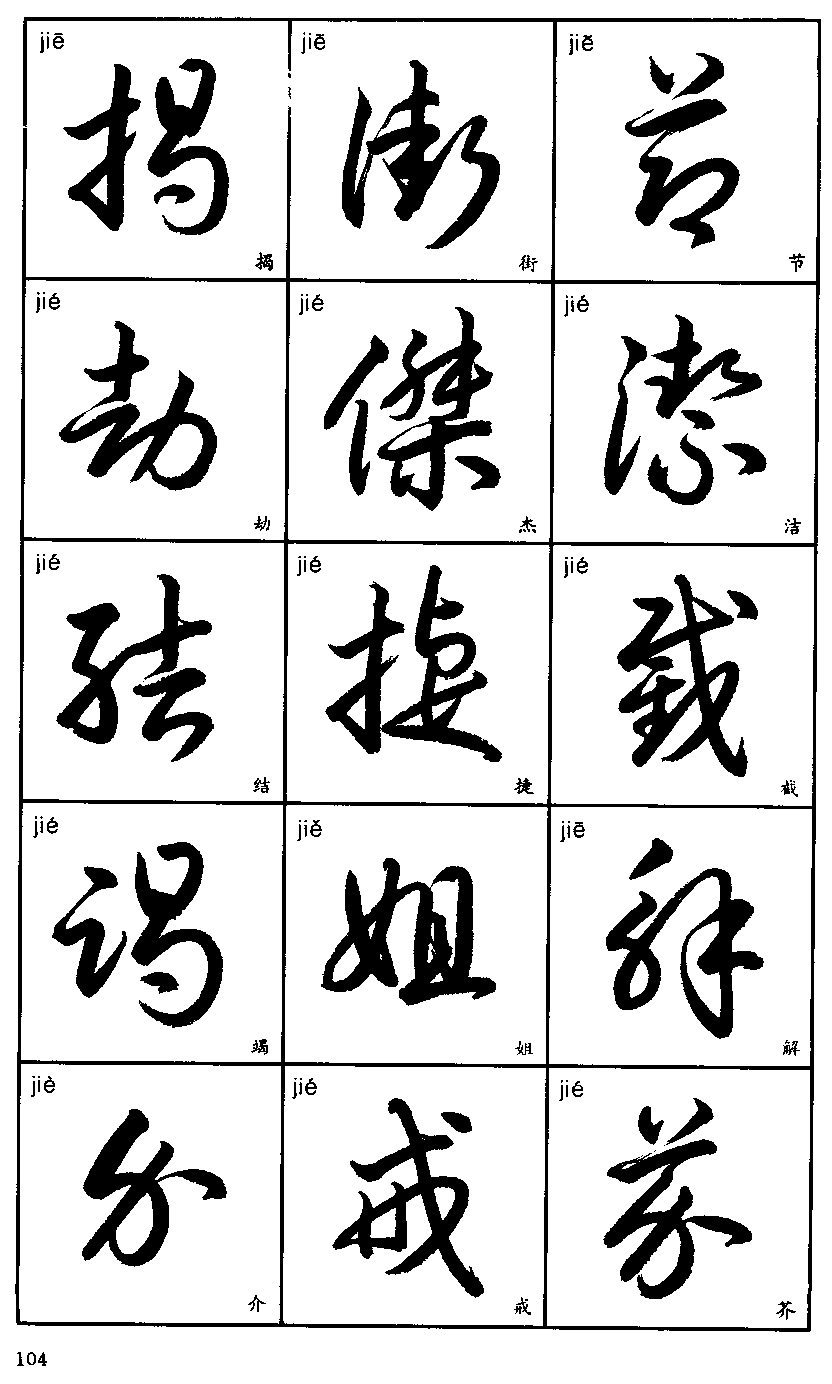 jiē jiē jiě
揭 街 節
揭 街 节
jié jié jié
劫 傑 潔
劫 杰 洁
jié jié jié
結 捷 截
结 捷 截
jié jiě jiē
竭 姐 解
竭 姐 解
jiè jié jié
介 戒 芥
介 戒 芥
104